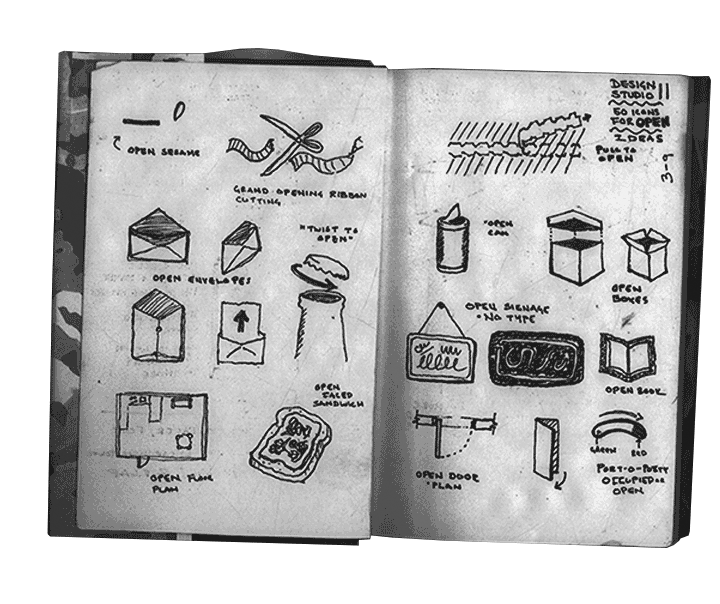 OPEN SESAME
GRAND OPENING RIBBON
CUTTING
OPEN ENVELOPES
"TWIST TO
OPEN"
OPEN
FACED
SANDWICH
OPEN FLOOR
PLAN
DESIGN
STUDIO II
50 ICONS
FOR OPEN
IDEAS
3-9
PULL TO
OPEN
OPEN
CAN
OPEN
BOXES
OPEN SIGNAGE
• NO TYPE
OPEN BOOK
OPEN DOOR
• PLAN
GREEN RED
PORT-O-POTTY
OCCUPIED OR
OPEN